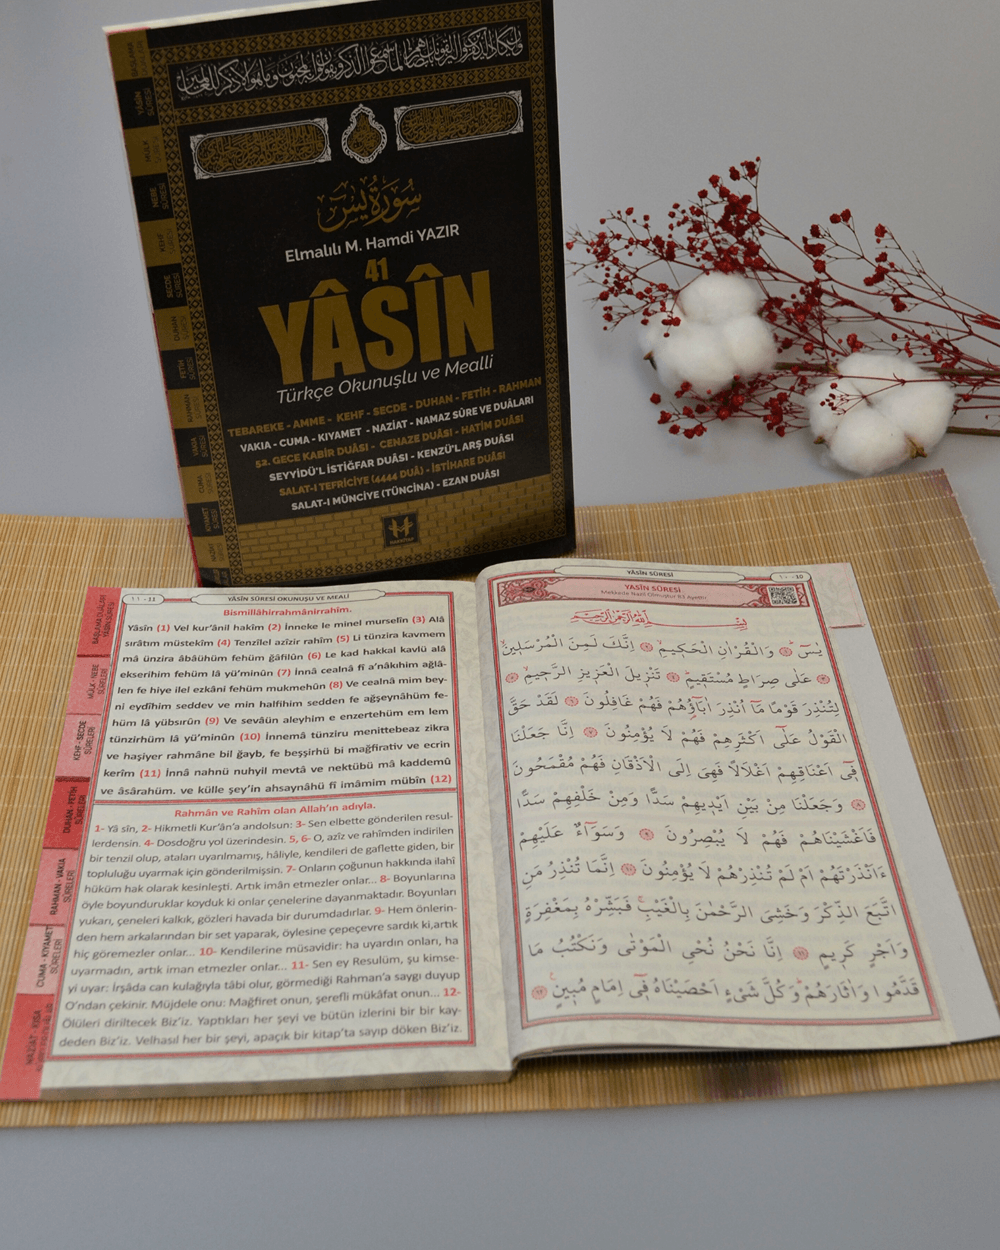 سُورَةُ يٰسٓ
Elmalılı M. Hamdi YAZIR
41
YÂSÎN
Türkçe Okunuşlu ve Mealli
TEBAREKE - AMME - KEHF - SECDE - DUHAN - FETİH - RAHMAN
VAKIA - CUMA - KIYAMET - NAZİAT - NAMAZ SÛRE VE DUÂLARI
52. GECE KABİR DUÂSI - CENAZE DUÂSI - HATİM DUÂSI
SEYYİDÜ'L İSTİĞFAR DUÂSI - KENZÜ'L ARŞ DUÂSI
SALAT-I TEFRİCİYE (4444 DUÂ) - İSTİHARE DUÂSI
SALAT-I MÜNCİYE (TÜNCİNA) - EZAN DUÂSI
YÂSÎN SÛRESİ OKUNUŞU VE MEALİ
Bismillâhirrahmânirrahîm.
Yâsîn (1) Vel kur'ânil hakîm (2) İnneke le minel murselîn (3) Alâ
sırâtım müstekîm (4) Tenzîlel azîzir rahîm (5) Li tünzira kavmem
mâ ünzira âbâühüm fehüm ğâfilûn (6) Le kad hakkal kavlü alâ
ekserihim fehüm lâ yü'minûn (7) İnnâ cealnâ fî a'nâkıhim ağlâ-
len fe hiye ilel ezkâni fehüm mukmehûn (8) Ve cealnâ mim bey-
ni eydîhim seddev ve min halfihim sedden fe ağşeynâhüm fe-
hüm lâ yübsırûn (9) Ve sevâün aleyhim e enzertehüm em lem
tünzirhüm lâ yü'minûn (10) İnnemâ tünziru menittebeaz zikra
ve haşiyer rahmâne bil ğayb, fe beşşirhü bi mağfirativ ve ecrin
kerîm (11) İnnâ nahnü nuhyil mevtâ ve nektübü mâ kaddemû
ve âsârahüm. ve külle şey'in ahsaynâhü fî imâmim mübîn (12)
Rahmân ve Rahîm olan Allah'ın adıyla.
1- Yâ sîn, 2- Hikmetli Kur'ân'a andolsun: 3- Sen elbette gönderilen resul-
lerdensin. 4- Dosdoğru yol üzerindesin. 5, 6- O, azîz ve rahîmden indirilen
bir tenzil olup, ataları uyarılmamış, hâliyle, kendileri de gaflette giden, bir
topluluğu uyarmak için gönderilmişsin. 7- Onların çoğunun hakkında ilahî
hüküm hak olarak kesinleşti. Artık imân etmezler onlar... 8- Boyunlarına
öyle boyunduruklar koyduk ki onlar çenelerine dayanmaktadır. Boyunları
yukarı, çeneleri kalkık, gözleri havada bir durumdadırlar. 9- Hem önlerin-
den hem arkalarından bir set yaparak, öylesine çepeçevre sardık ki,artık
hiç göremezler onlar... 10- Kendilerine müsavidir: ha uyardın onları, ha
uyarmadın, artık iman etmezler onlar... 11- Sen ey Resulüm, şu kimse-
yi uyar: İrşâda can kulağıyla tâbi olur, görmediği Rahman'a saygı duyup
O'ndan çekinir. Müjdele onu: Mağfiret onun, şerefli mükâfat onun... 12-
Ölüleri diriltecek Biz'iz. Yaptıkları her şeyi ve bütün izlerini bir bir kay-
deden Biz'iz. Velhasıl her bir şeyi, apaçık bir kitap'ta sayıp döken Biz'iz.
MÜLK - NEBE SÛRELERİ
KEHF - SECDE SÛRELERİ
DUHÂN - FETİH SÛRELERİ
RAHMAN - VAKIA SÛRELERİ
CUMA - KIYAMET SÛRELERİ
YÂSÎN SÛRESİ
YASİN SÛRESİ
Mekke'de Nazil Olmuştur 83 Ayettir.
بِسْمِ اللّٰهِ الرَّحْمٰنِ الرَّحِيمِ
يٰسٓ ۝ وَالْقُرْاٰنِ الْحَكِيمِ ۝ اِنَّكَ لَمِنَ الْمُرْسَلِينَ
۝ عَلٰى صِرَاطٍ مُسْتَقِيمٍ ۝ تَنْزِيلَ الْعَزِيزِ الرَّحِيمِ ۝
لِتُنْذِرَ قَوْمًا مَٓا اُنْذِرَ اٰبَٓاؤُ۬هُمْ فَهُمْ غَافِلُونَ ۝ لَقَدْ حَقَّ
الْقَوْلُ عَلٰٓى اَكْثَرِهِمْ فَهُمْ لَا يُؤْمِنُونَ ۝ اِنَّا جَعَلْنَا
فِٓى اَعْنَاقِهِمْ اَغْلَالًا فَهِىَ اِلَى الْاَذْقَانِ فَهُمْ مُقْمَحُونَ
۝ وَجَعَلْنَا مِنْ بَيْنِ اَيْدِيهِمْ سَدًّا وَمِنْ خَلْفِهِمْ سَدًّا
فَاَغْشَيْنَاهُمْ فَهُمْ لَا يُبْصِرُونَ ۝ وَسَوَٓاءٌ عَلَيْهِمْ
ءَاَنْذَرْتَهُمْ اَمْ لَمْ تُنْذِرْهُمْ لَا يُؤْمِنُونَ ۝ اِنَّمَا تُنْذِرُ مَنِ
اتَّبَعَ الذِّكْرَ وَخَشِىَ الرَّحْمٰنَ بِالْغَيْبِ فَبَشِّرْهُ بِمَغْفِرَةٍ
وَاَجْرٍ كَرِيمٍ ۝ اِنَّا نَحْنُ نُحْىِ الْمَوْتٰى وَنَكْتُبُ مَا
قَدَّمُوا وَاٰثَارَهُمْ وَكُلَّ شَىْءٍ اَحْصَيْنَاهُ فِٓى اِمَامٍ مُبِينٍ ۝